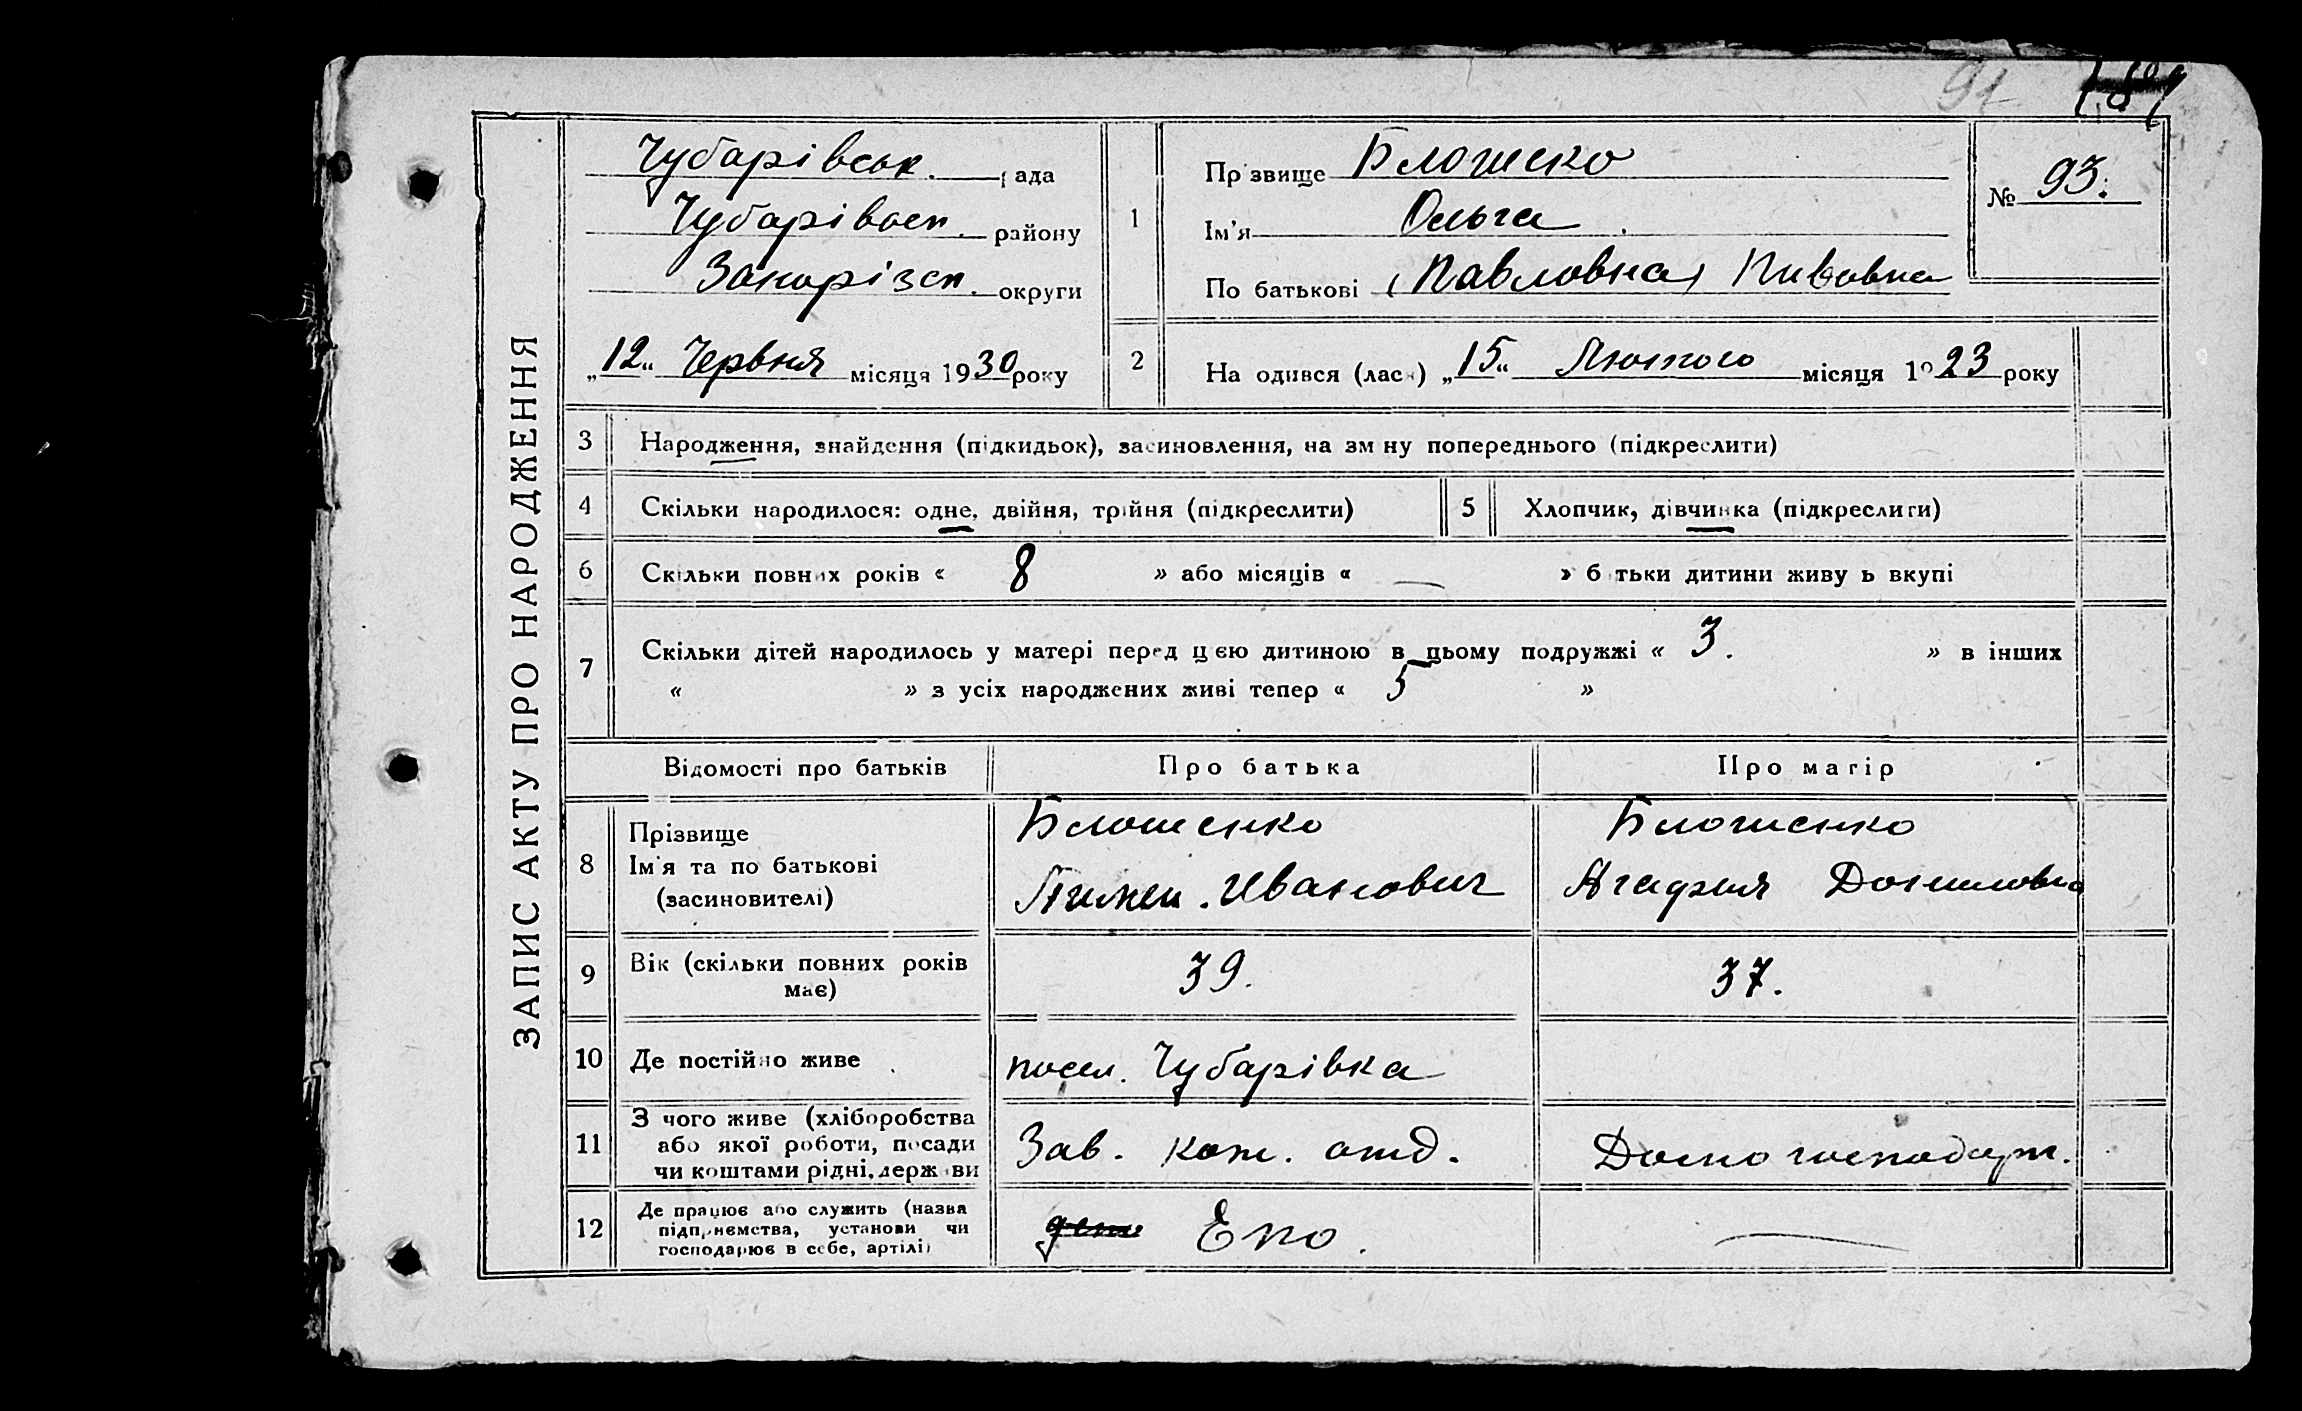 91
ЗАПИС АКТУ ПРО НАРОДЖЕННЯ
Чубарівськ. рада
Чубарівськ. району
Запорізьк. округи
„12“ Червня місяця 1930 року
1
Прізвище Блошенко
Ім'я Ольга
По батькові (Павловна)
№ 93.
2
На одився (лась) „15“ Лютого місяця 1923 року
3 Народження, знайдення (підкидьок), засиновлення, на зм ну попереднього (підкреслити)
4 Скільки народилося: одне, двійня, трійня (підкреслити) 5 Хлопчик, дівчинка (підкреслити)
6 Скільки повних років « 8 » або місяців « — » б тьки дитини живу ь вкупі
7 Скільки дітей народилось у матері перед цією дитиною в цьому подружжі « 3. » в інших
« » з усіх народжених живі тепер « 5 »
Відомості про батьків Про батька Про матір
8 Прізвище
Ім'я та по батькові
(засиновителі)
Блошенко
Пимен. Иванович
Блошенко
Агафия Даниловна
9 Вік (скільки повних років
має)
39.
37.
10 Де постійно живе посел. Чубарівка
11 З чого живе (хліборобства
або якої роботи, посади
чи коштами рідні, держ ви
Зав. кож. отд.
Домогосподарк.
12 Де працює або служить (назва
підприємства, установи чи
господарює в себе, артілі)
Епо. —